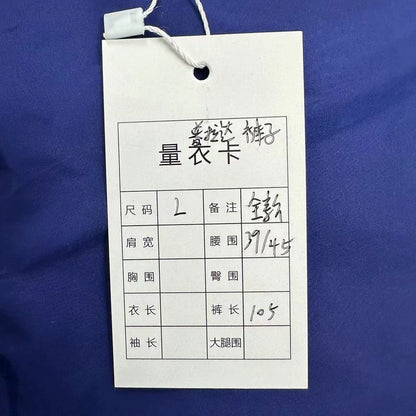 普拉达 裤子
量衣卡
尺码 L 备注 全新
肩宽 腰围 39/45
胸围 臀围
衣长 裤长 105
袖长 大腿围